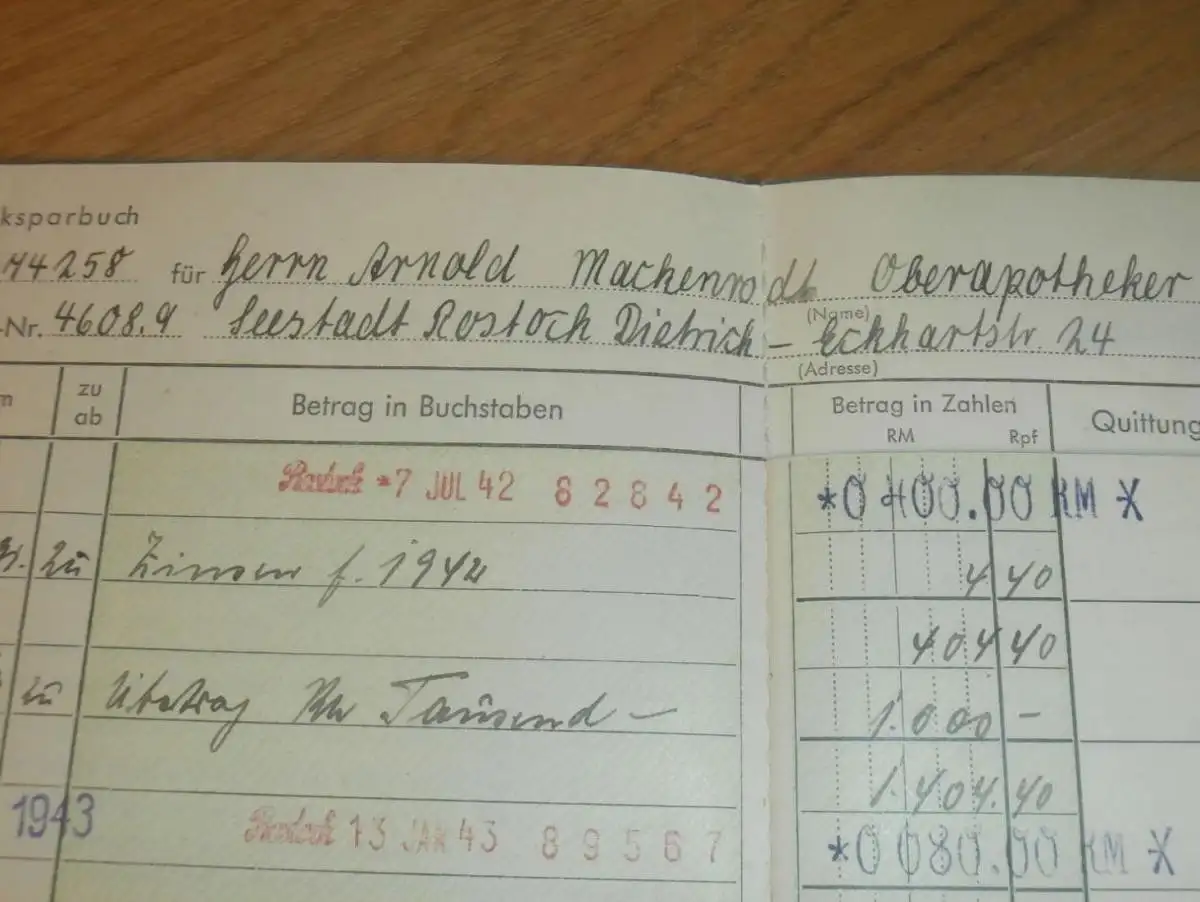 ksparbuch
44258 für Herrn Arnold Mackenrodt Oberapotheker
(Name)
-Nr. 4608.9 Seestadt Rostock Dietrich-Eckhartstr. 24
(Adresse)
zu ab Betrag in Buchstaben Betrag in Zahlen Quittung
RM Rpf
Rostock *7 JUL 42 62842 *0400.00 RM *
zu Zinsen f. 1942 4 40
404 40
zu Übertrag RM Tausend — 1.000 –
1.404.40
1943 Rostock 13 JAN 43 89567 *0080.00 RM *